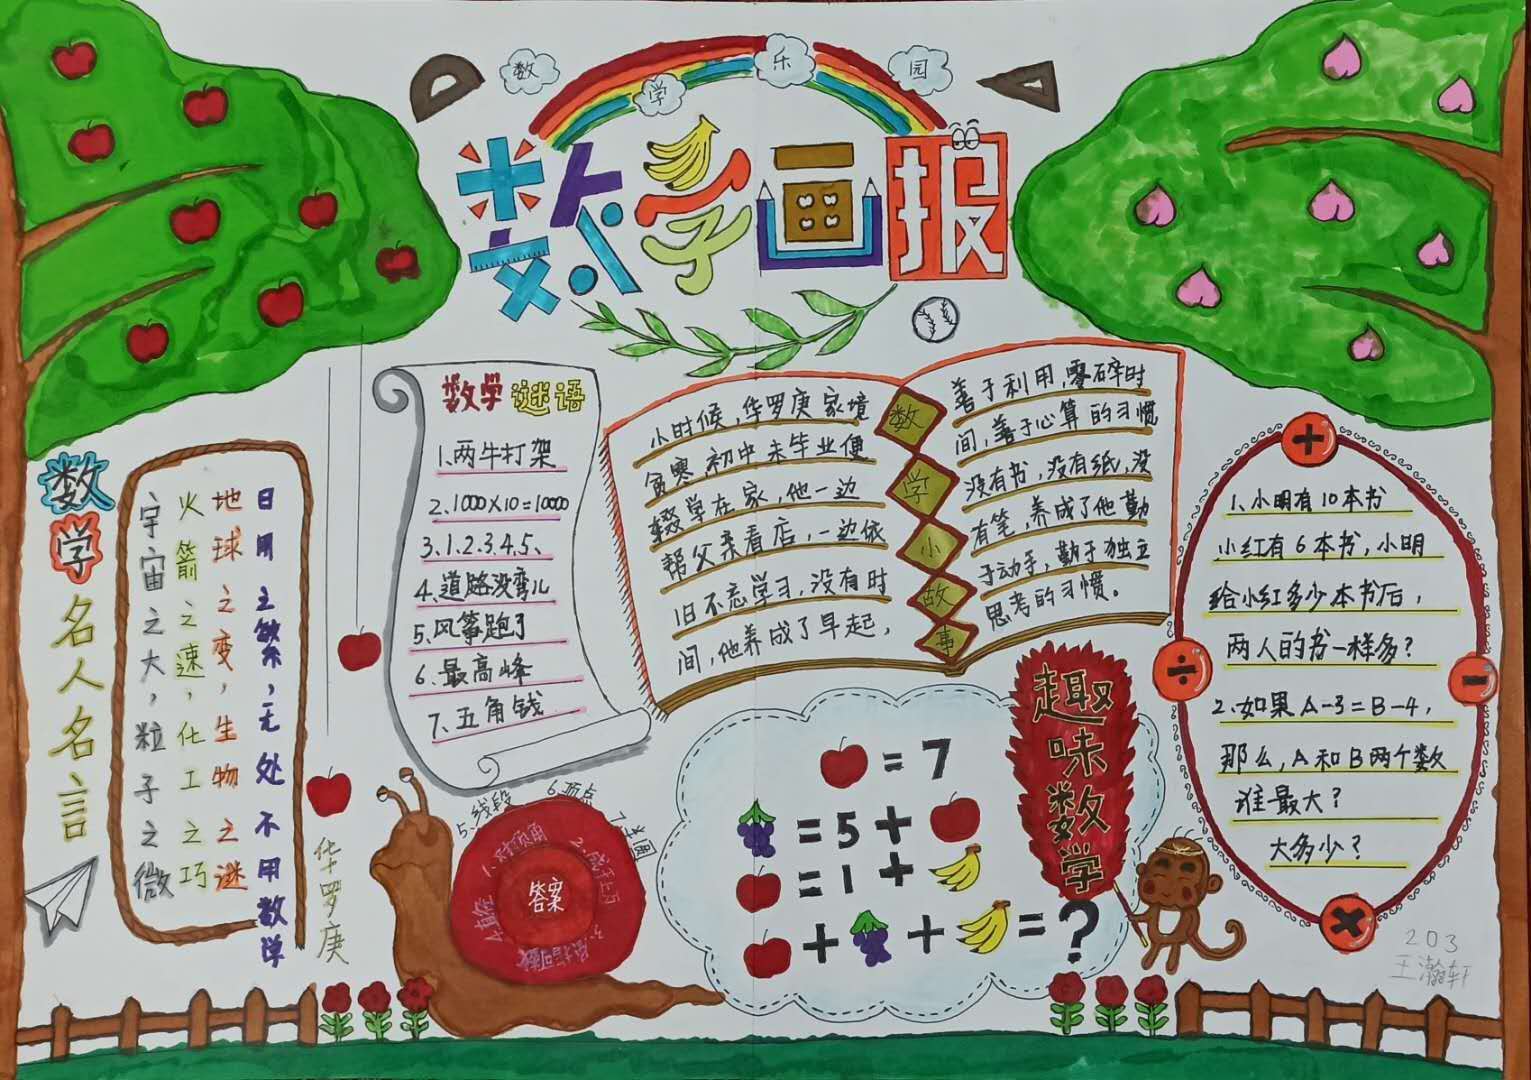 数学乐园
数学画报
数学名人名言
宇宙之大，粒子之微
火箭之速，化工之巧
地球之变，生物之谜
日用之繁，无处不用数学
华罗庚
数学谜语
1、两牛打架
2、1000×10=10000
3、1.2.3.4.5、
4、道路没弯儿
5、风筝跑了
6、最高峰
7、五角钱
数学小故事
小时候，华罗庚家境
贫寒初中未毕业便
辍学在家，他一边
帮父亲看店，一边依
旧不忘学习，没有时
间，他养成了早起，
善于利用，零碎时
间，善于心算的习惯
没有书，没有纸，没
有笔，养成了他勤
于动手，勤于独立
思考的习惯。
1、小明有10本书
小红有6本书，小明
给小红多少本书后，
两人的书一样多？
2、如果A-3=B-4，
那么，A和B两个数
谁最大？
大多少？
答案
1.对顶角
2.成千上万
3.屈指可数
4.直径
5.线段
6.顶点
7.半圆
趣味数学
=7
=5+
=1+
++=?
203
王瀚轩